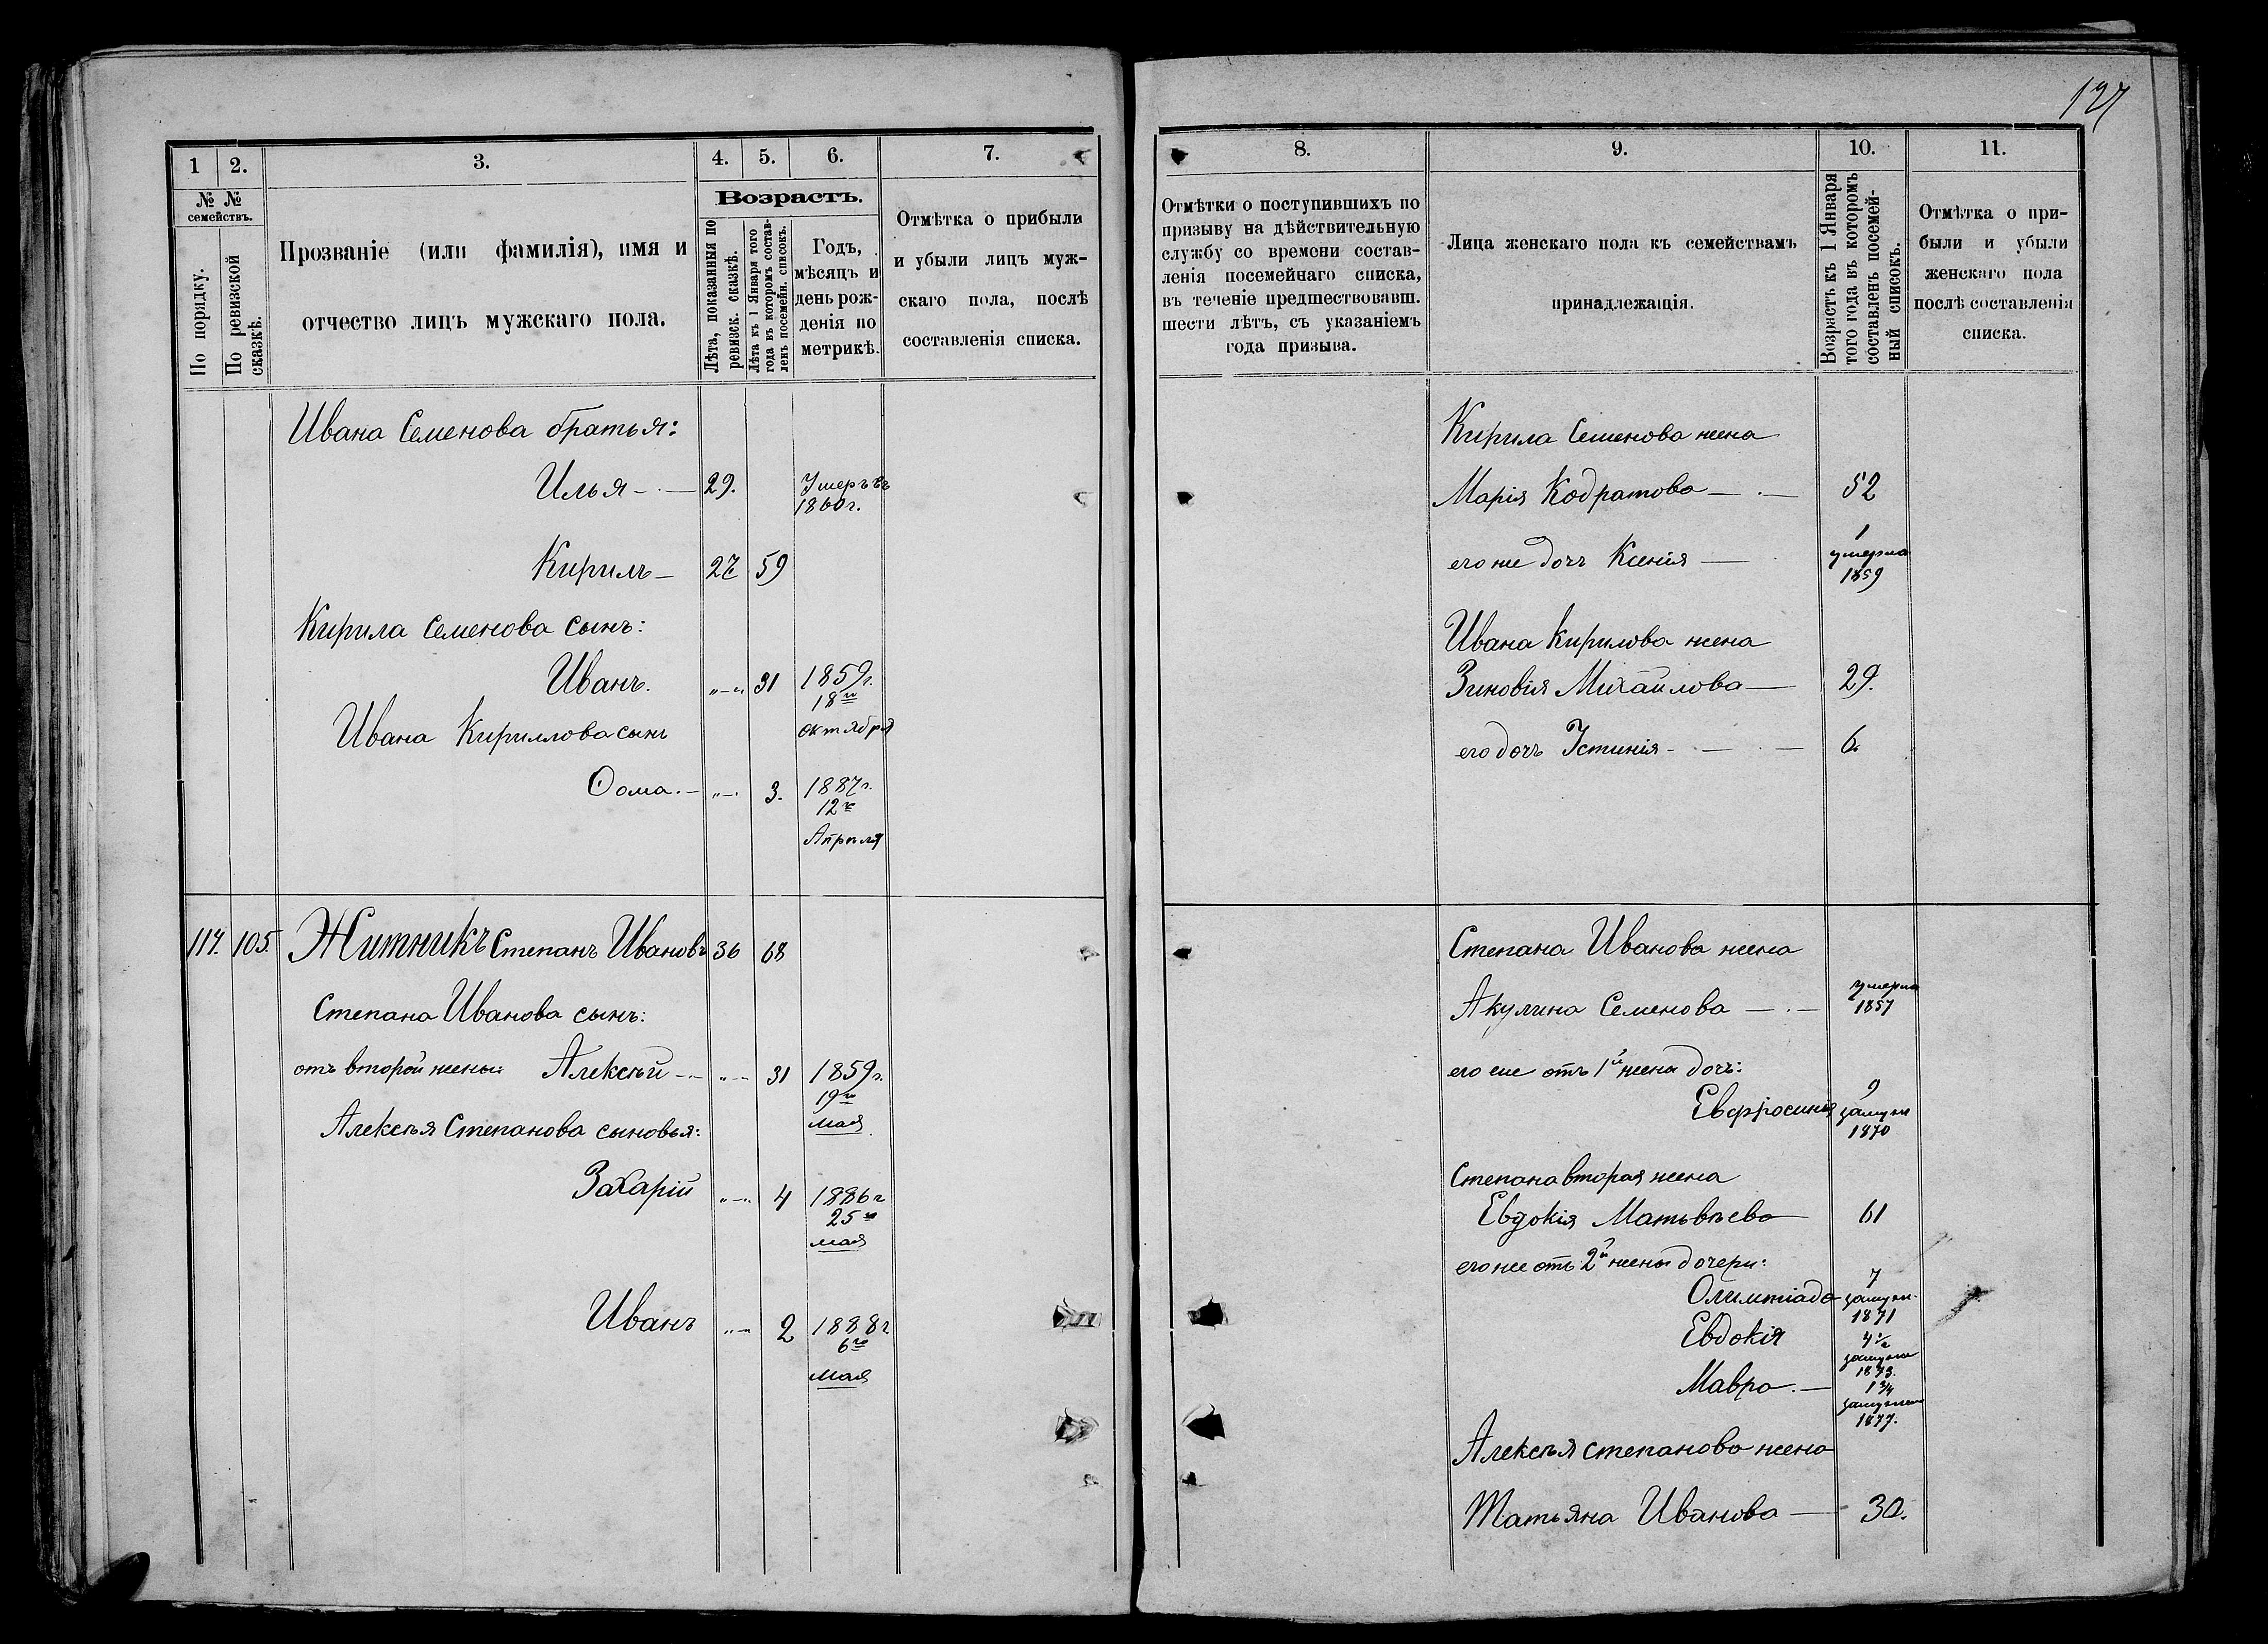 127
1 2. 3. 4. 5. 6. 7.
№ №
семействъ.
По порядку.
По ревизской
сказкѣ.
Прозваніе (или фамилія), имя и
отчество лицъ мужскаго пола.
Возрастъ.
Лѣта, показанныя по
ревизск. сказкѣ.
Лѣта къ 1 Января того
года въ которомъ состав-
ленъ посемейн. списокъ.
Годъ,
мѣсяцъ и
день рож-
денія по
метрикѣ.
Отмѣтка о прибыли
и убыли лицъ муж-
скаго пола, послѣ
составленія списка.
Ивана Семенова братья:
Илья — 29. Умеръ въ
1860 г.
Кирилъ — 27 59
Кирила Семенова сынъ:
Иванъ. „—„ 31 1859 г.
18го
октября
Ивана Кириллова сынъ
Ѳома. — „—„ 3. 1887 г.
12го
Апрѣля
114. 105. Житникъ Степанъ Ивановъ 36 68
Степана Иванова сынъ:
отъ второй жены: Алексѣй — „—„ 31 1859 г.
19го
мая
Алексѣя Степанова сыновья:
Захарій „—„ 4 1886 г
25го
мая
Иванъ „—„ 2 1888 г
6го
мая
8. 9. 10. 11.
Отмѣтки о поступившихъ по
призыву на дѣйствительную
службу со времени состав-
ленія посемейнаго списка,
въ теченіе предшествовавш.
шести лѣтъ, съ указаніемъ
года призыва.
Лица женскаго пола къ семействамъ
принадлежащія.
Возрастъ къ 1 Января
того года въ которомъ
составленъ посемей-
ный списокъ.
Отмѣтка о при-
были и убыли
женскаго пола
послѣ составленія
списка.
Кирила Семенова жена
Марія Кодратова — 52
его же дочь Ксенія — 1
умерла
1859
Ивана Кирилова жена
Зиновія Михайлова — 29.
его дочь Устинія — 6.
Степана Иванова жена
Акулина Семенова — умерла
1857
его же отъ 1й жены дочь:
Евфросинья 9
замуж
1870
Степана вторая жена
Евдокія Матвѣева 61
его же отъ 2й жены дочери:
Олимпіада 7
замуж.
1871
Евдокія 4½
замужем
1873.
Мавра. — 1¾
замужем
1877.
Алексѣя Степанова жена
Татьяна Иванова — 30.